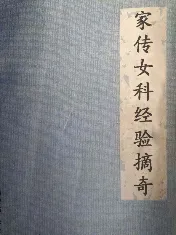 家传女科经验摘奇